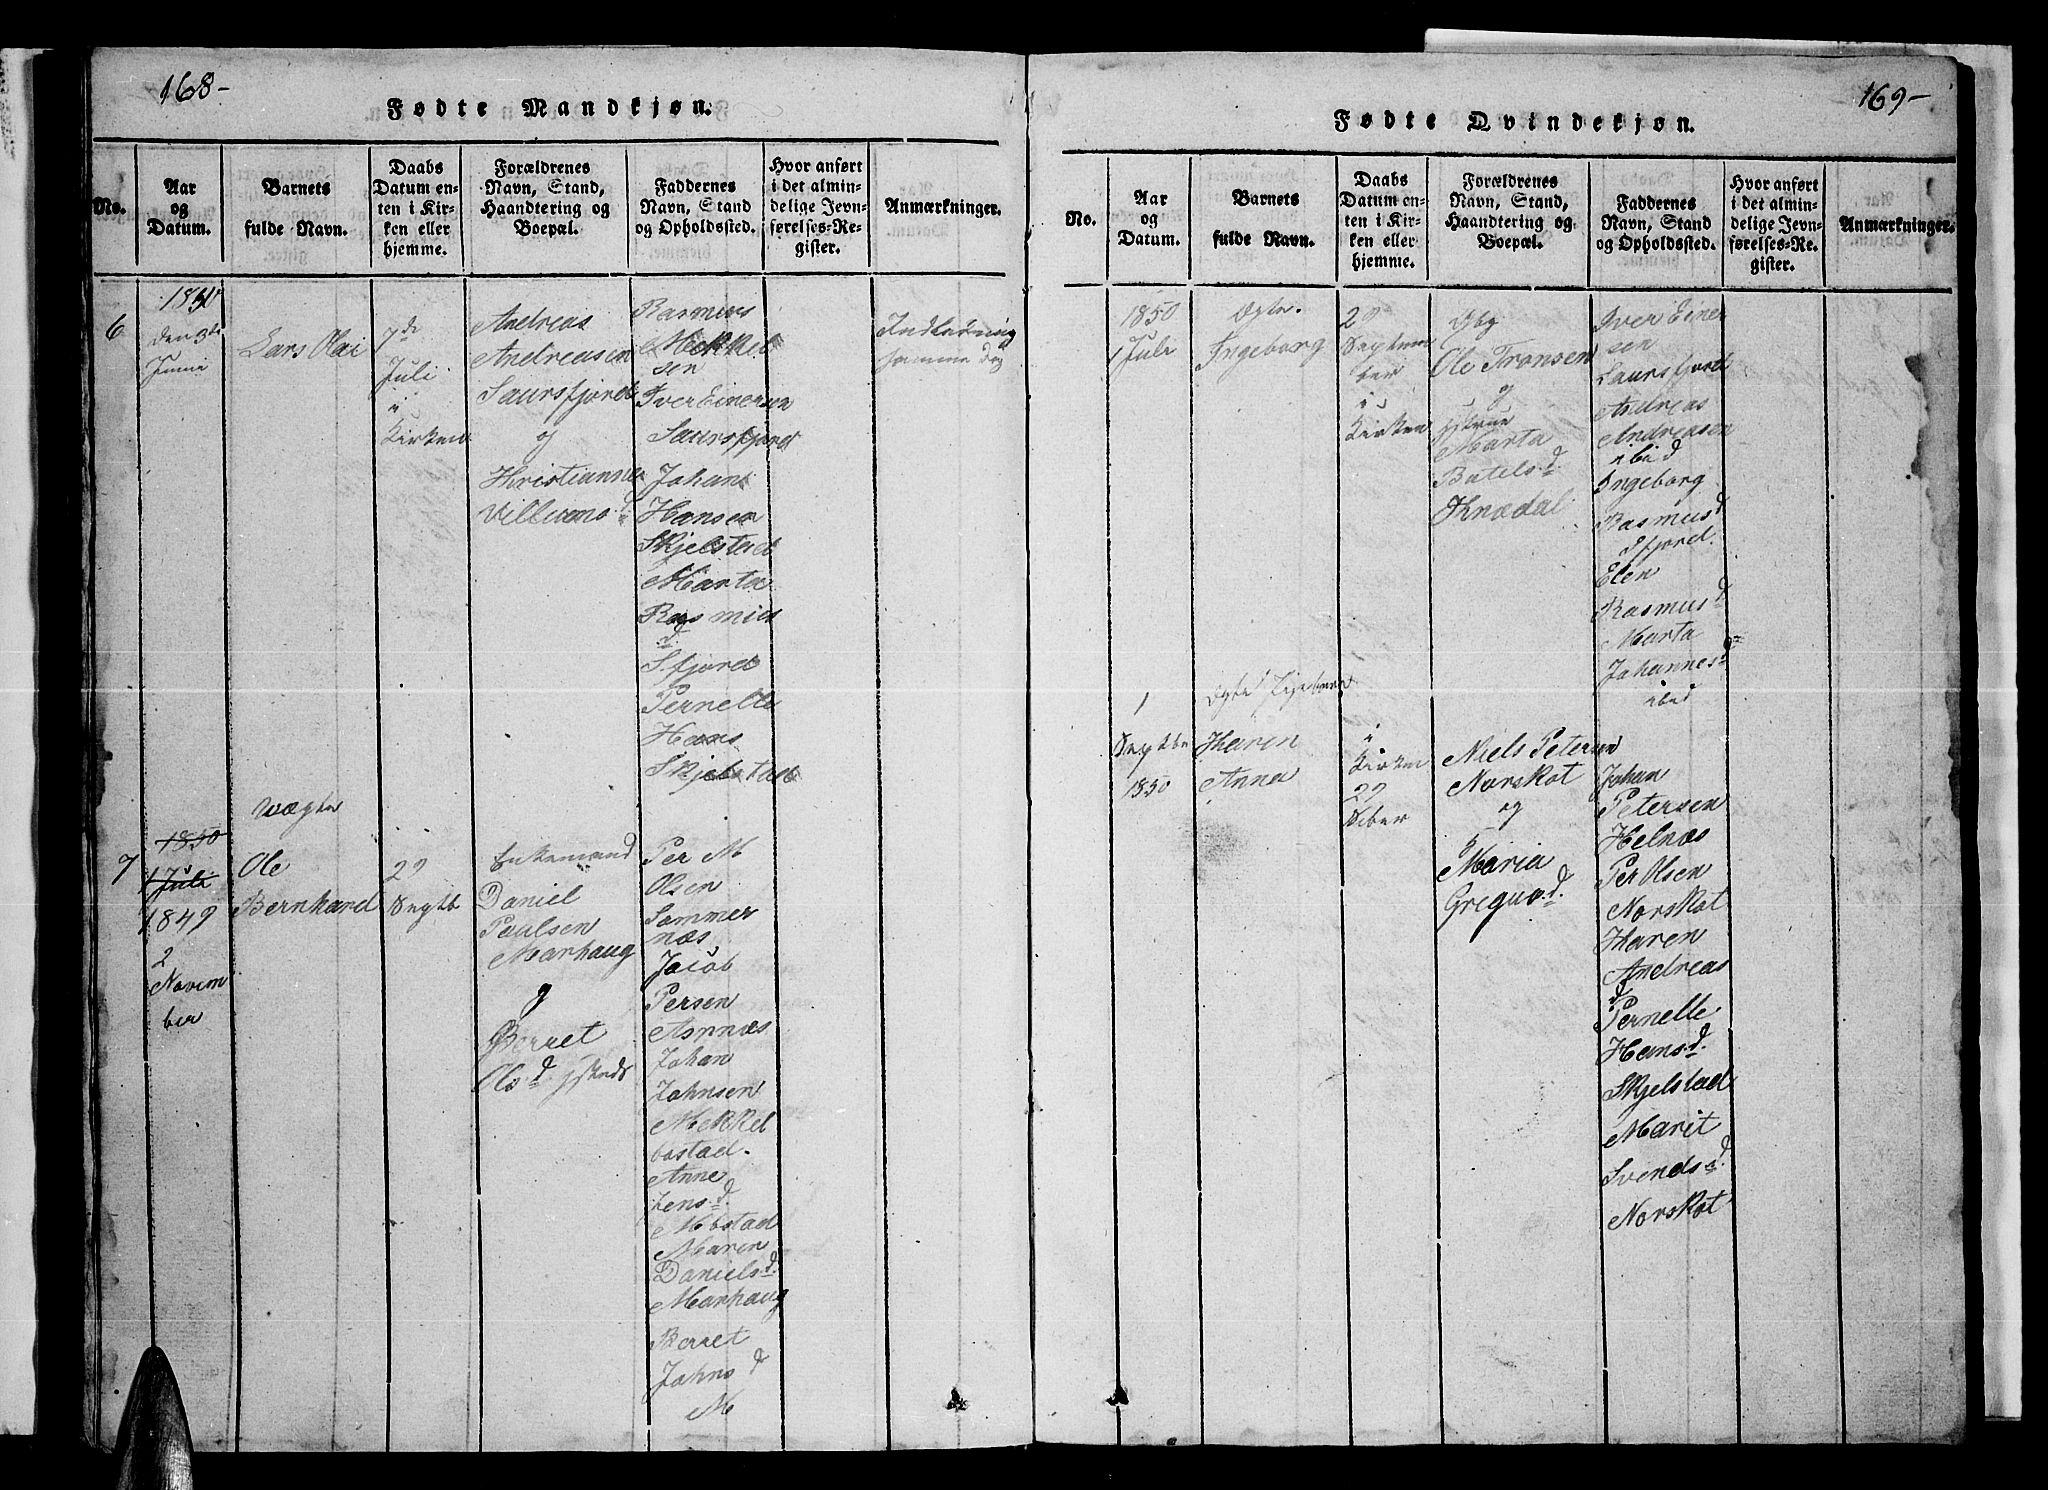 168-
Fødte Mandkjøn.
No.
Aar
og
Datum.
Barnets
fulde Navn.
Daabs
Datum en-
ten i Kir-
ken eller
hjemme.
Forældrenes
Navn, Stand,
Haandtering og
Boepæl.
Faddernes
Navn, Stand
og Opholdssted.
Hvor anført
i det almin-
delige Jevn-
førelses-Re-
gister.
Anmærkninger.
6
1850
den 3de
Junii
Lars Olai
7de
Juli
i
Kirken
Andreas
Andreasen
Saursfjord
og
Kristianne
Villums d
Rasmus
Mekkel
sen
Iver Einersen
Saursfjord
Johan
Hansen
Skjelstad
Marta
Rasmus
d
S.fjord
Pernelle
Hans
Skjelstad
Indledning
samme Dag
7
1850
1 Juli
1849
2
Novem
ber
Uægte
Ole
Bernhard
29
Septb
Enkemand
Daniel
Paulsen
Marhaug
og
Berret
Ols d
Per M
Olsen
Sommer
næs
Jacob
Persen
Aspnæs
Johan
Johnsen
Mekkel
bostad.
Anne
Jens d
Mbstad
Maren
Daniels d
Marhaug
Berret
Johns d
M
169-
Fødte Qvindekjøn.
No.
Aar
og
Datum.
Barnets
fulde Navn.
Daabs
Datum en-
ten i Kir-
ken eller
hjemme.
Forældrenes
Navn, Stand,
Haandtering og
Boepæl.
Faddernes
Navn, Stand
og Opholdssted.
Hvor anført
i det almin-
delige Jevn-
førelses-Re-
gister.
Anmærkninger.
1850
1 Juli
Ægte.
Ingeborg
29
Septem
ber
i
Kirken
Ole Tronsen
og
Hstrue
Marta
Batels d
Knædal
Iver Einer
sen
Saursfjord
Andreas
Andreasen
ibid
Ingeborg
Rasmus d
Sfjord.
Elen
Rasmus d
Marta
Johannes d
ibid
1
Septbr
1850
Ægte
Karen
Anna
i
Kirken
29
Sber
Niels Petersen
Norskot
og
H
Maria
Gregus d
Johan
Petersen
Helnæs
Per Olsen
Norskot
Karen
Andreas
d
Pernelle
Hans d
Skjelstad
Marit
Svends d
Norskot